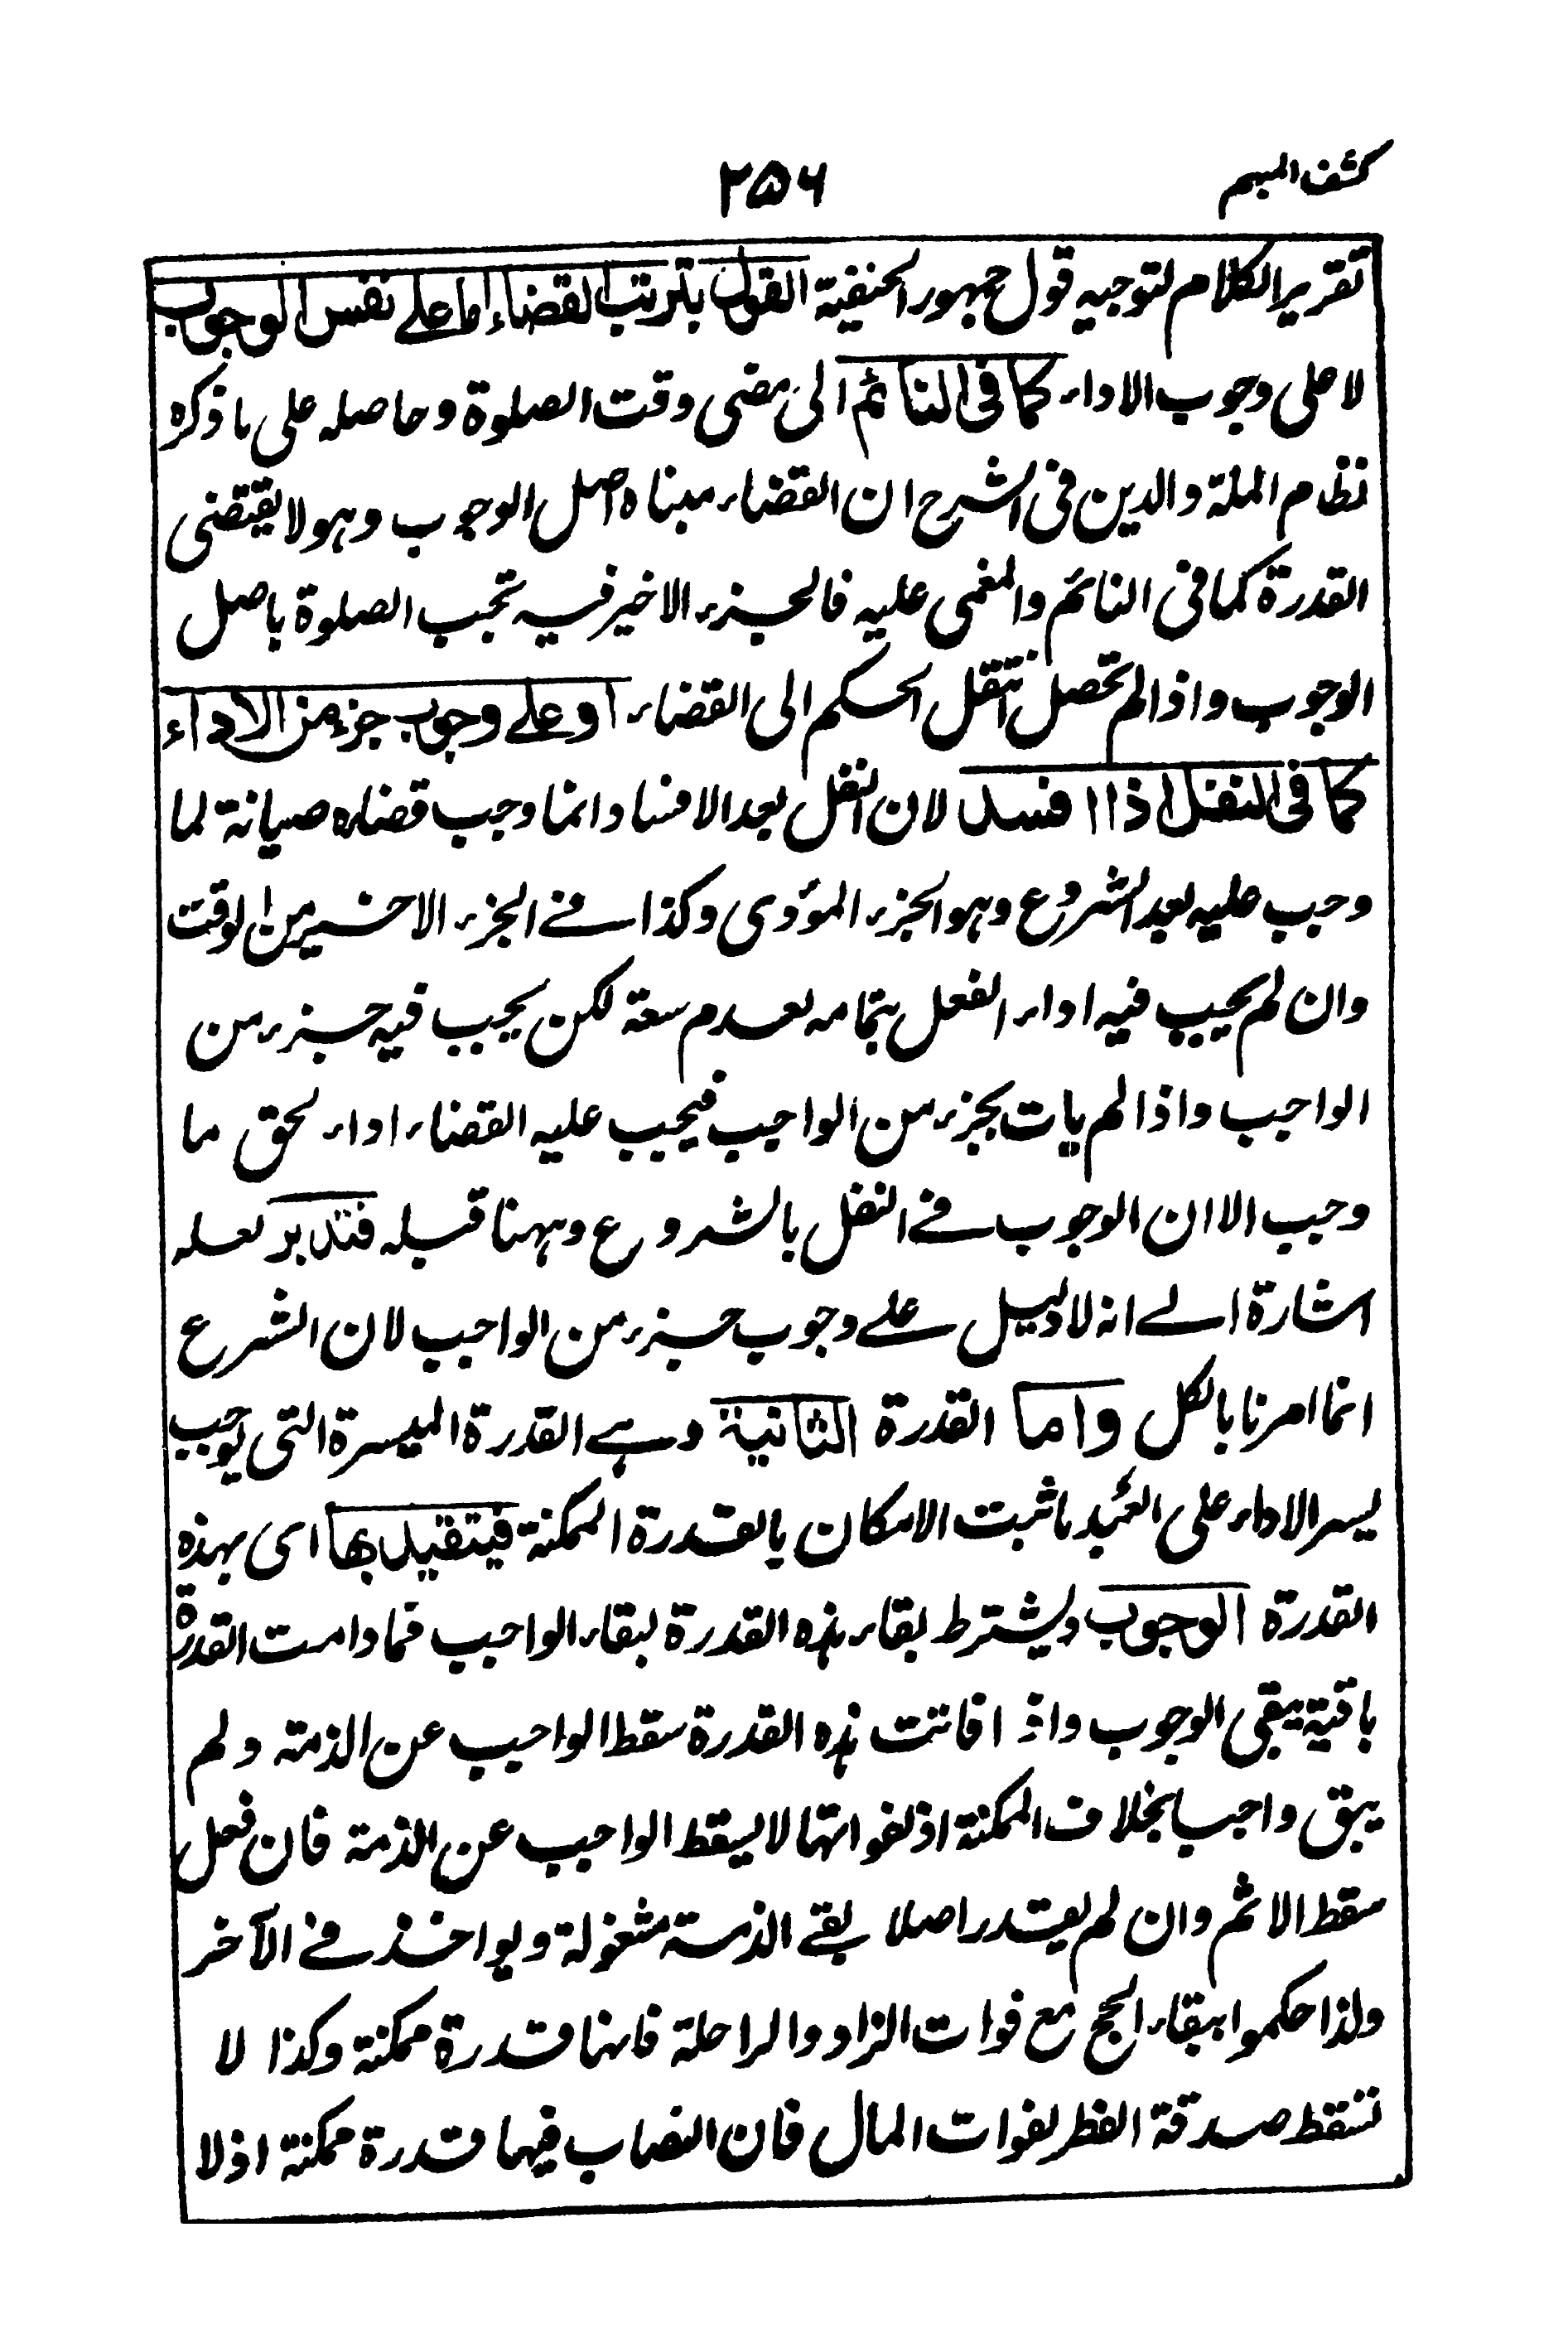 كشف المبهم
۲۵۶
تقرير الكلام لتوجيه قول جمهور الحنفية القول بترتب القضاء اما على نفس الوجوب
لا على وجوب الاداء كما فى النائم الى مضى وقت الصلوة وحاصله على ما ذكره
نظام الملة والدين فى الشرح ان القضاء مبناه اصل الوجوب وهو لا يقتضى
القدرة كما فى النائم والمغمى عليه فالجزء الاخير فيه تجب الصلوة باصل
الوجوب واذا لم تحصل انتقل الحكم الى القضاء او على وجوب جزء من الاداء
كما فى النفل اذا افسد لان النفل بعد الافساد انما وجب قضاءه صيانة لما
وجب عليه بعد الشروع وهو الجزء المؤدى وكذا فے الجزء الاخير من الوقت
وان لم يجب فيه اداء الفعل بتمامه لعدم سعة لكن يجب فيه جزء من
الواجب واذا لم يات بجزء من الواجب فيجب عليه القضاء اداء لحق ما
وجب الا ان الوجوب فے النفل بالشروع وههنا قبله فتدبر لعله
اشارة الے انه لا دليل علے وجوب جزء من الواجب لان الشرع
انما امرنا بالكل واما القدرة الثانية وهے القدرة الميسرة التى يوجب
يسر الاداء على العبد ما ثبت الامكان بالقدرة الممكنة فيتقيد بها اى بهذه
القدرة الوجوب ويشترط بقاء هذه القدرة لبقاء الواجب فما دامت القدرة
باقية يبقى الوجوب واذا فاتت هذه القدرة سقط الواجب عن الذمة ولم
يبق واجبا بخلاف الممكنة اذ لفواتها لا يسقط الواجب عن الذمة فان فعل
سقط الاثم وان لم يقدر اصلا بقے الذمة مشغولة ويواخذ فے الآخر
ولذا حكموا ببقاء الحج مع فوات الزاد والراحلة فانها قدرة ممكنة وكذا لا
تسقط صدقة الفطر لفوات المال فان النصاب فيها قدرة ممكنة اذ لا